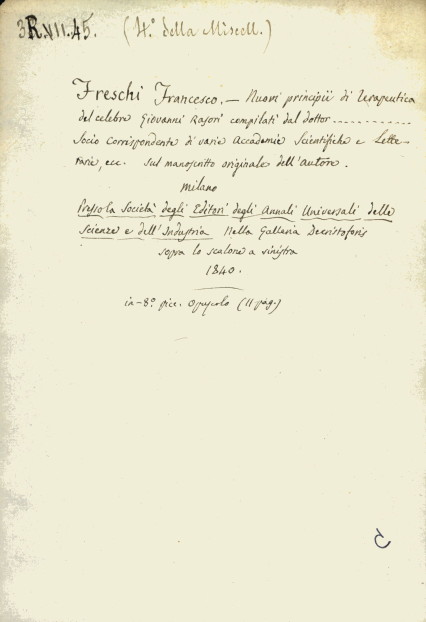 3R.VII.45. (4.º della Miscell.)
Freschi Francesco. — Nuovi principii di terapeutica
del celebre Giovanni Rasori compilati dal dottor............
Socio corrispondente di varie Accademie Scientifiche e Lette-
rarie, ecc. sul manoscritto originale dell'autore.
Milano
Presso la Società degli Editori degli Annali Universali delle
Scienze e dell'Industria nella Galleria Decristoforis
sopra lo scalone a sinistra
1840.
in-8º picc. opuscolo (11 pag.)